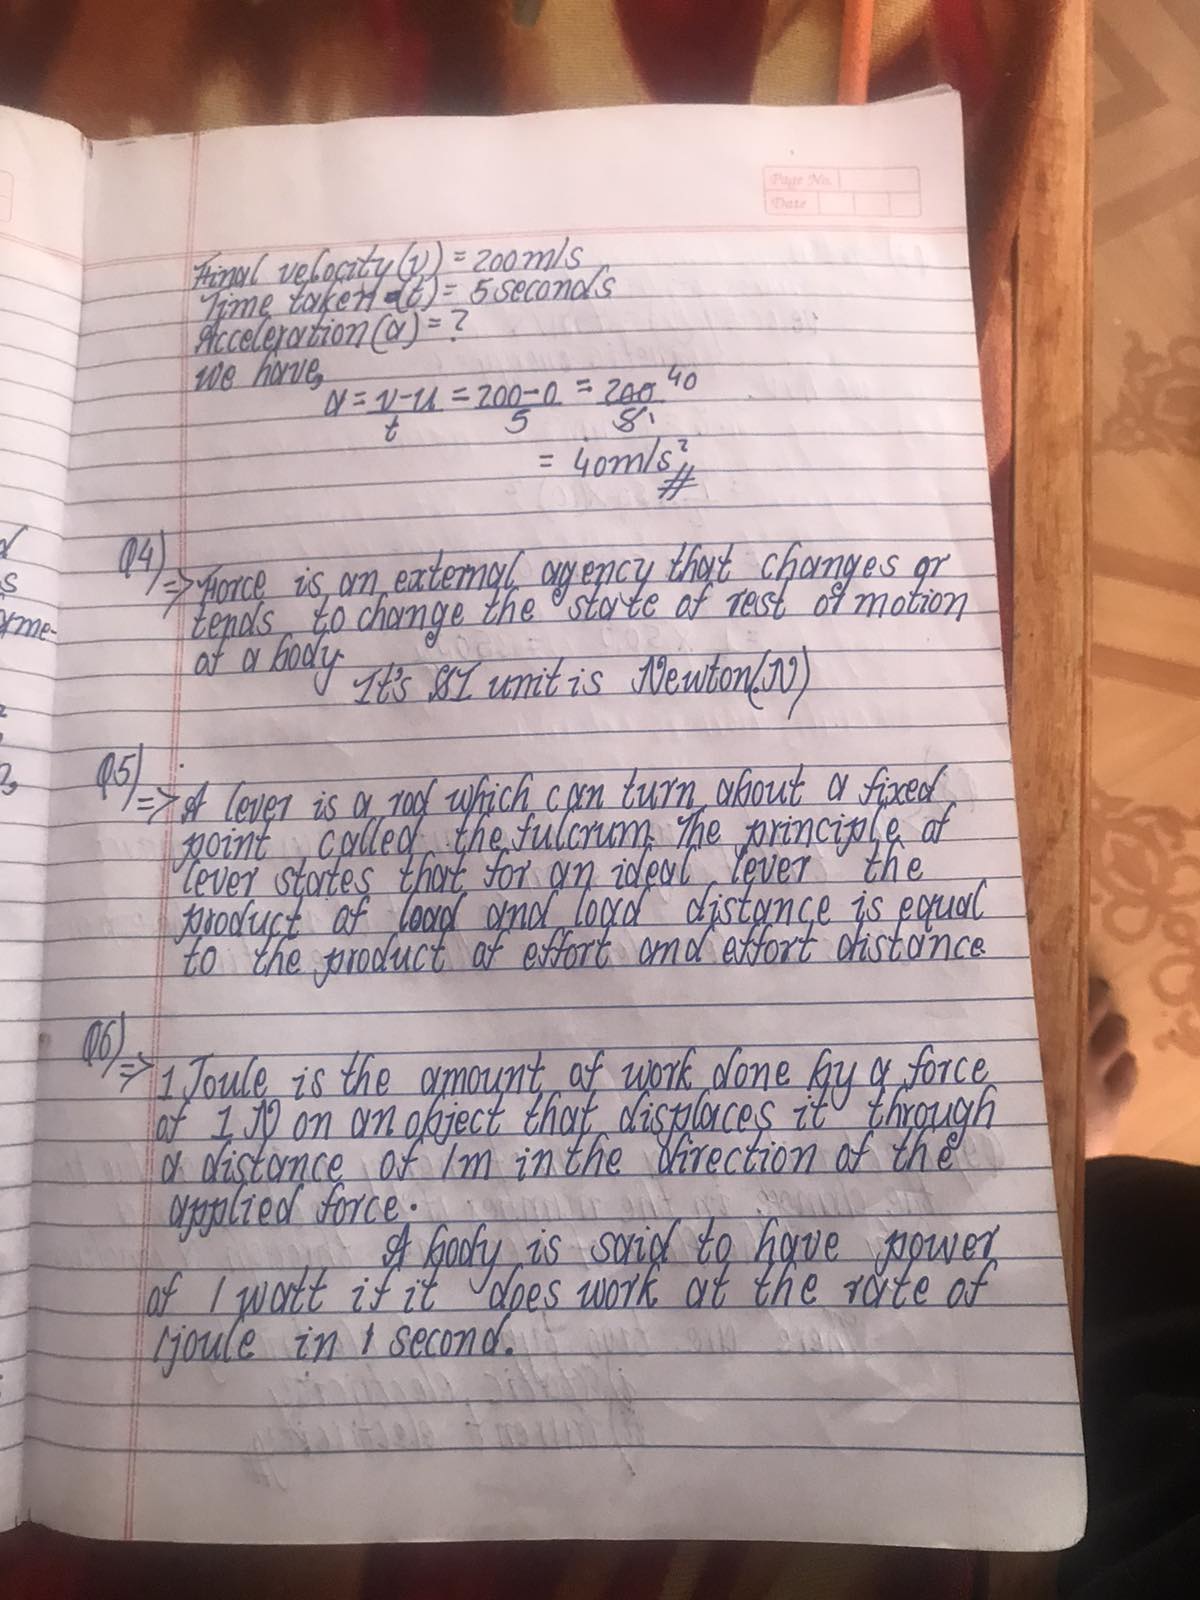 Page No.
Date
Final velocity(v) = 200m/s
Time taken (t) = 5 seconds
Acceleration(a) = ?
We have,
a = v-u/t = 200-0/5 = 200/5 40 1
= 40m/s²
#
Q4)
=> Force is an external agency that changes or
tends to change the state of rest or motion
of a body.
It's SI unit is Newton(N)
Q5)
=> A lever is a rod which can turn about a fixed
point called the fulcrum. The principle of
lever states that for an ideal lever the
product of load and load distance is equal
to the product of effort and effort distance
Q6)
=> 1 Joule is the amount of work done by a force
of 1 N on an object that displaces it through
a distance of 1m in the direction of the
applied force.
A body is said to have power
of 1 watt if it does work at the rate of
1joule in 1 second.